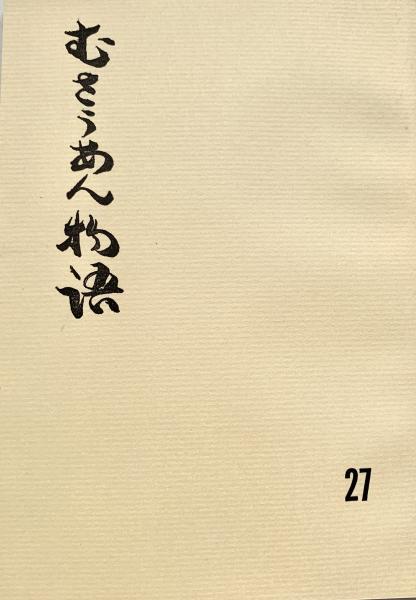 むさうあん物語
27